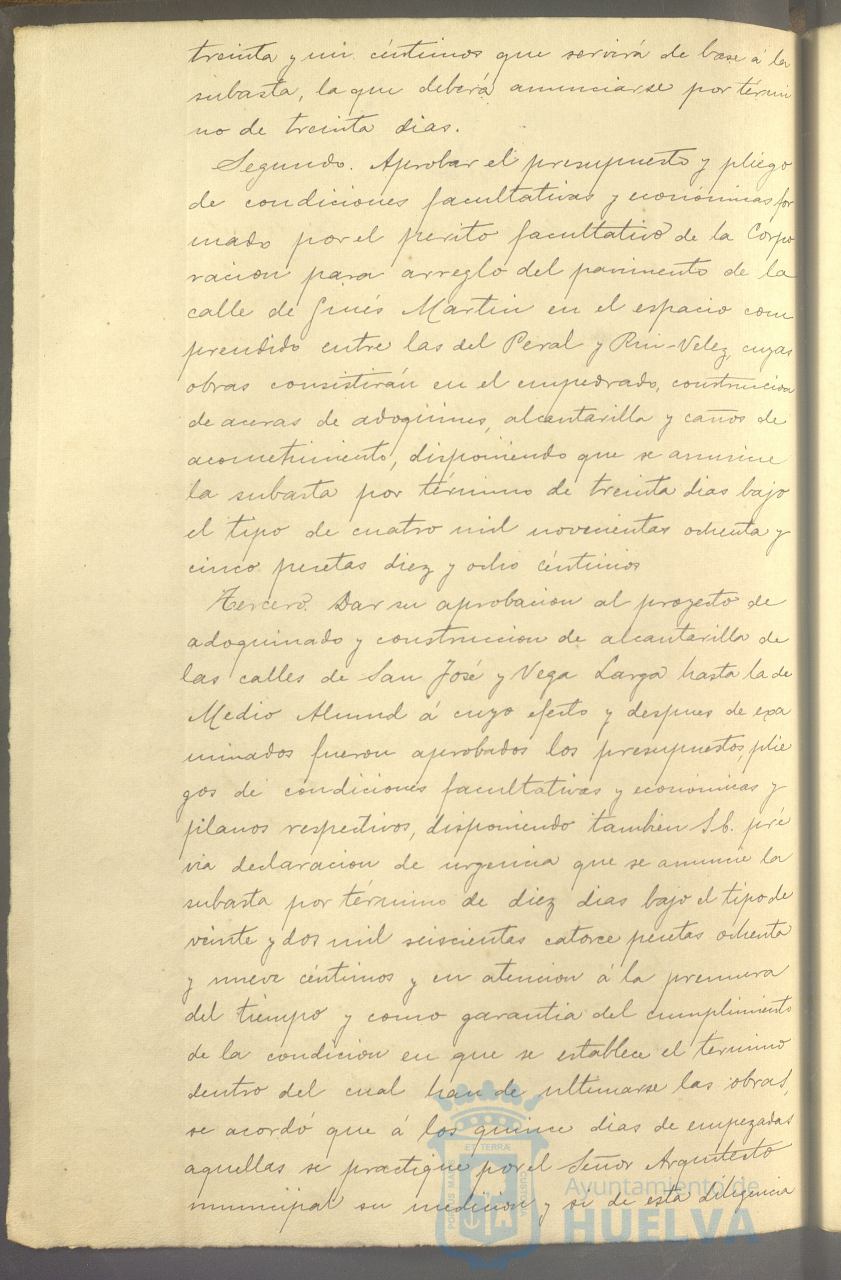 treinta y un céntimos que servirá de base á la
subasta, la que deberá anunciarse por térmi
no de treinta dias.
Segundo. Aprobar el presupuesto y pliego
de condiciones facultativas y económicas for
mado por el perito facultativo de la Corpo
racion para arreglo del pavimento de la
calle de Ginés Martin en el espacio com
prendido entre las del Peral y Rui-Velez, cuyas
obras consistirán en el empedrado, construccion
de aceras de adoquines, alcantarilla y caños de
acometimiento, disponiendo que se anuncie
la subasta por término de treinta dias bajo
el tipo de cuatro mil novecientas ochenta y
cinco pesetas diez y ocho céntimos
Tercero. Dar su aprobacion al proyecto de
adoquinado y construccion de alcantarilla de
las calles de San José y Vega Larga hasta la de
Medio Almud á cuyo efecto y despues de exa
minados fueron aprobados los presupuestos, plie
gos de condiciones facultativas y económicas y
planos respectivos, disponiendo tambien S. E. pré
via declaracion de urgencia que se anuncie la
subasta por término de diez dias bajo el tipo de
veinte y dos mil seiscientas catorce pesetas ochenta
y nueve céntimos y en atencion á la premura
del tiempo y como garantia del cumplimiento
de la condicion en que se establece el término
dentro del cual han de ultimarse las obras,
se acordó que á los quince dias de empezadas
aquellas se practique por el Señor Arquitecto
municipal su medicion y si de esta diligencia
PORTUS MARIS ET TERRÆ CUSTODIA
Ayuntamiento de
HUELVA